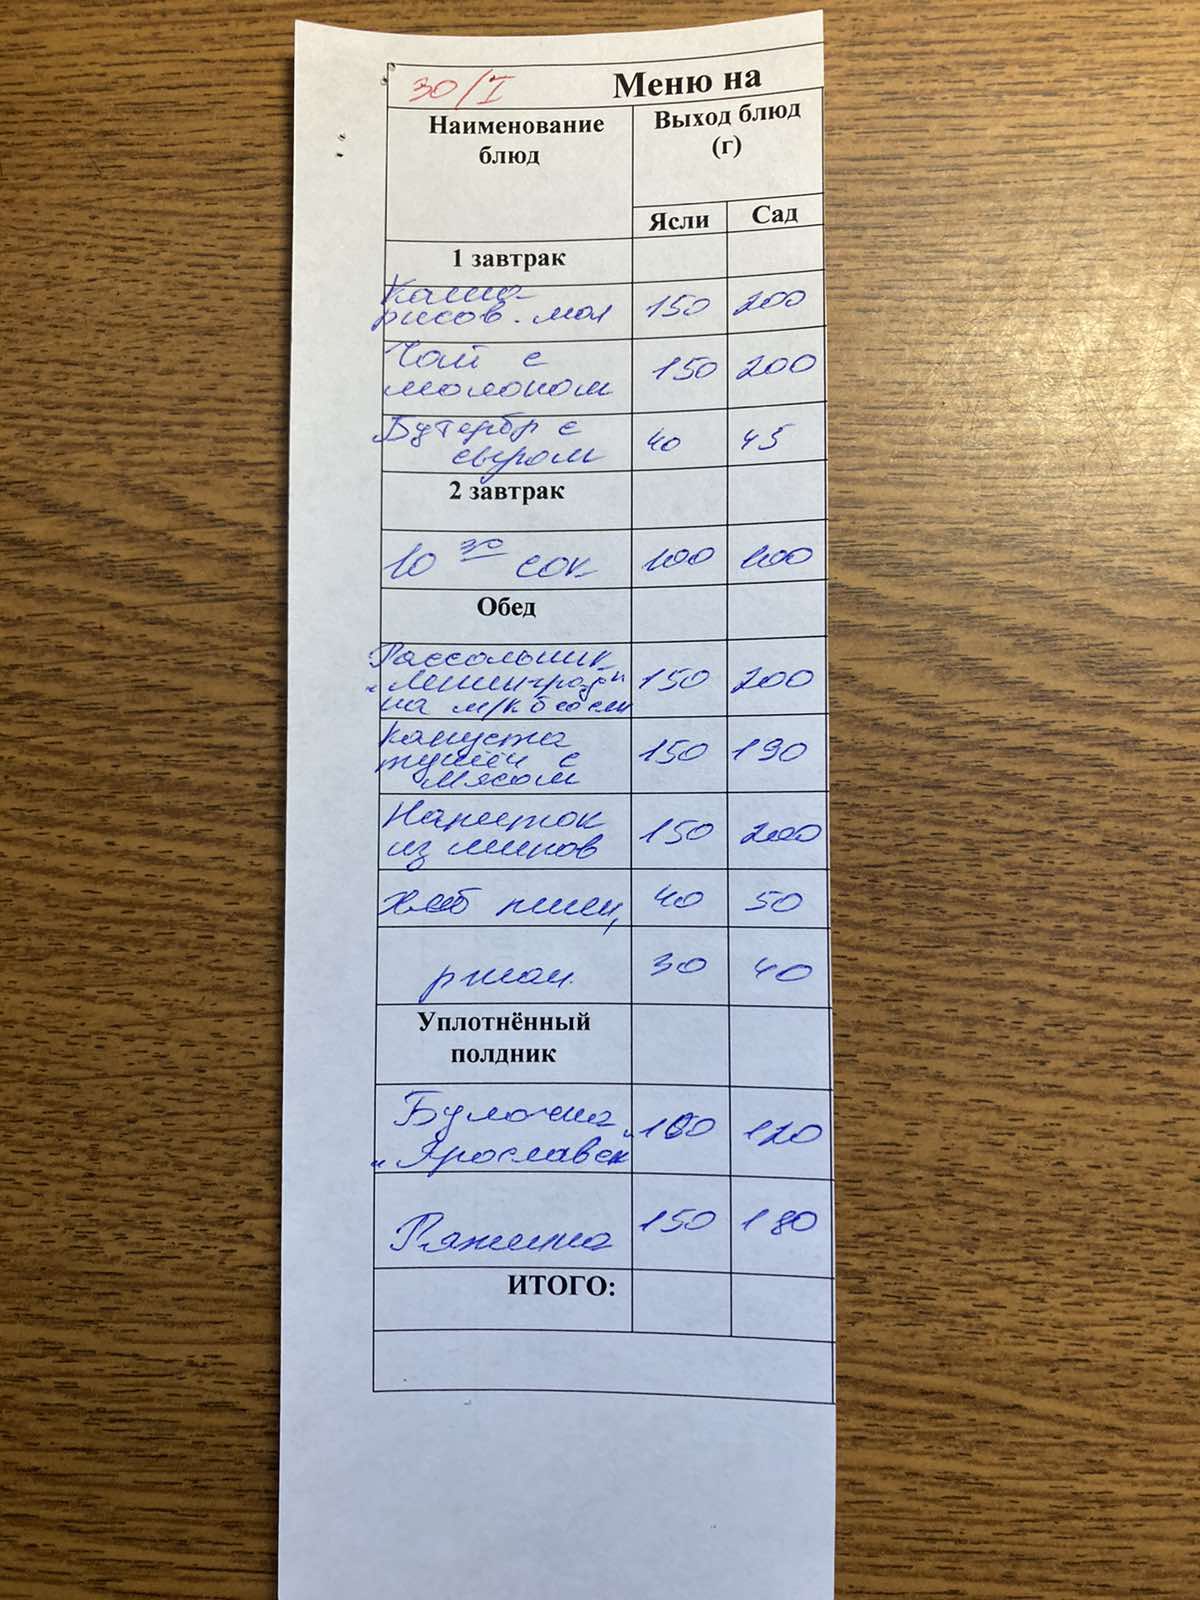 30/I Меню на
Наименование Выход блюд
блюд (г)
Ясли Сад
1 завтрак
Каша
рисов. мол 150 200
Чай с
молоком 150 200
Бутербр с
сыром 40 45
2 завтрак
10 30 сок 100 100
Обед
Рассольник
"Ленинград" 150 200
на м/к б
Капуста
тушён с 150 190
мясом
Напиток
из 150 200
Хлеб пшен, 40 50
ржан. 30 40
Уплотнённый
полдник
Булочка
"Ярославск" 100 120
Ряженка 150 180
ИТОГО: